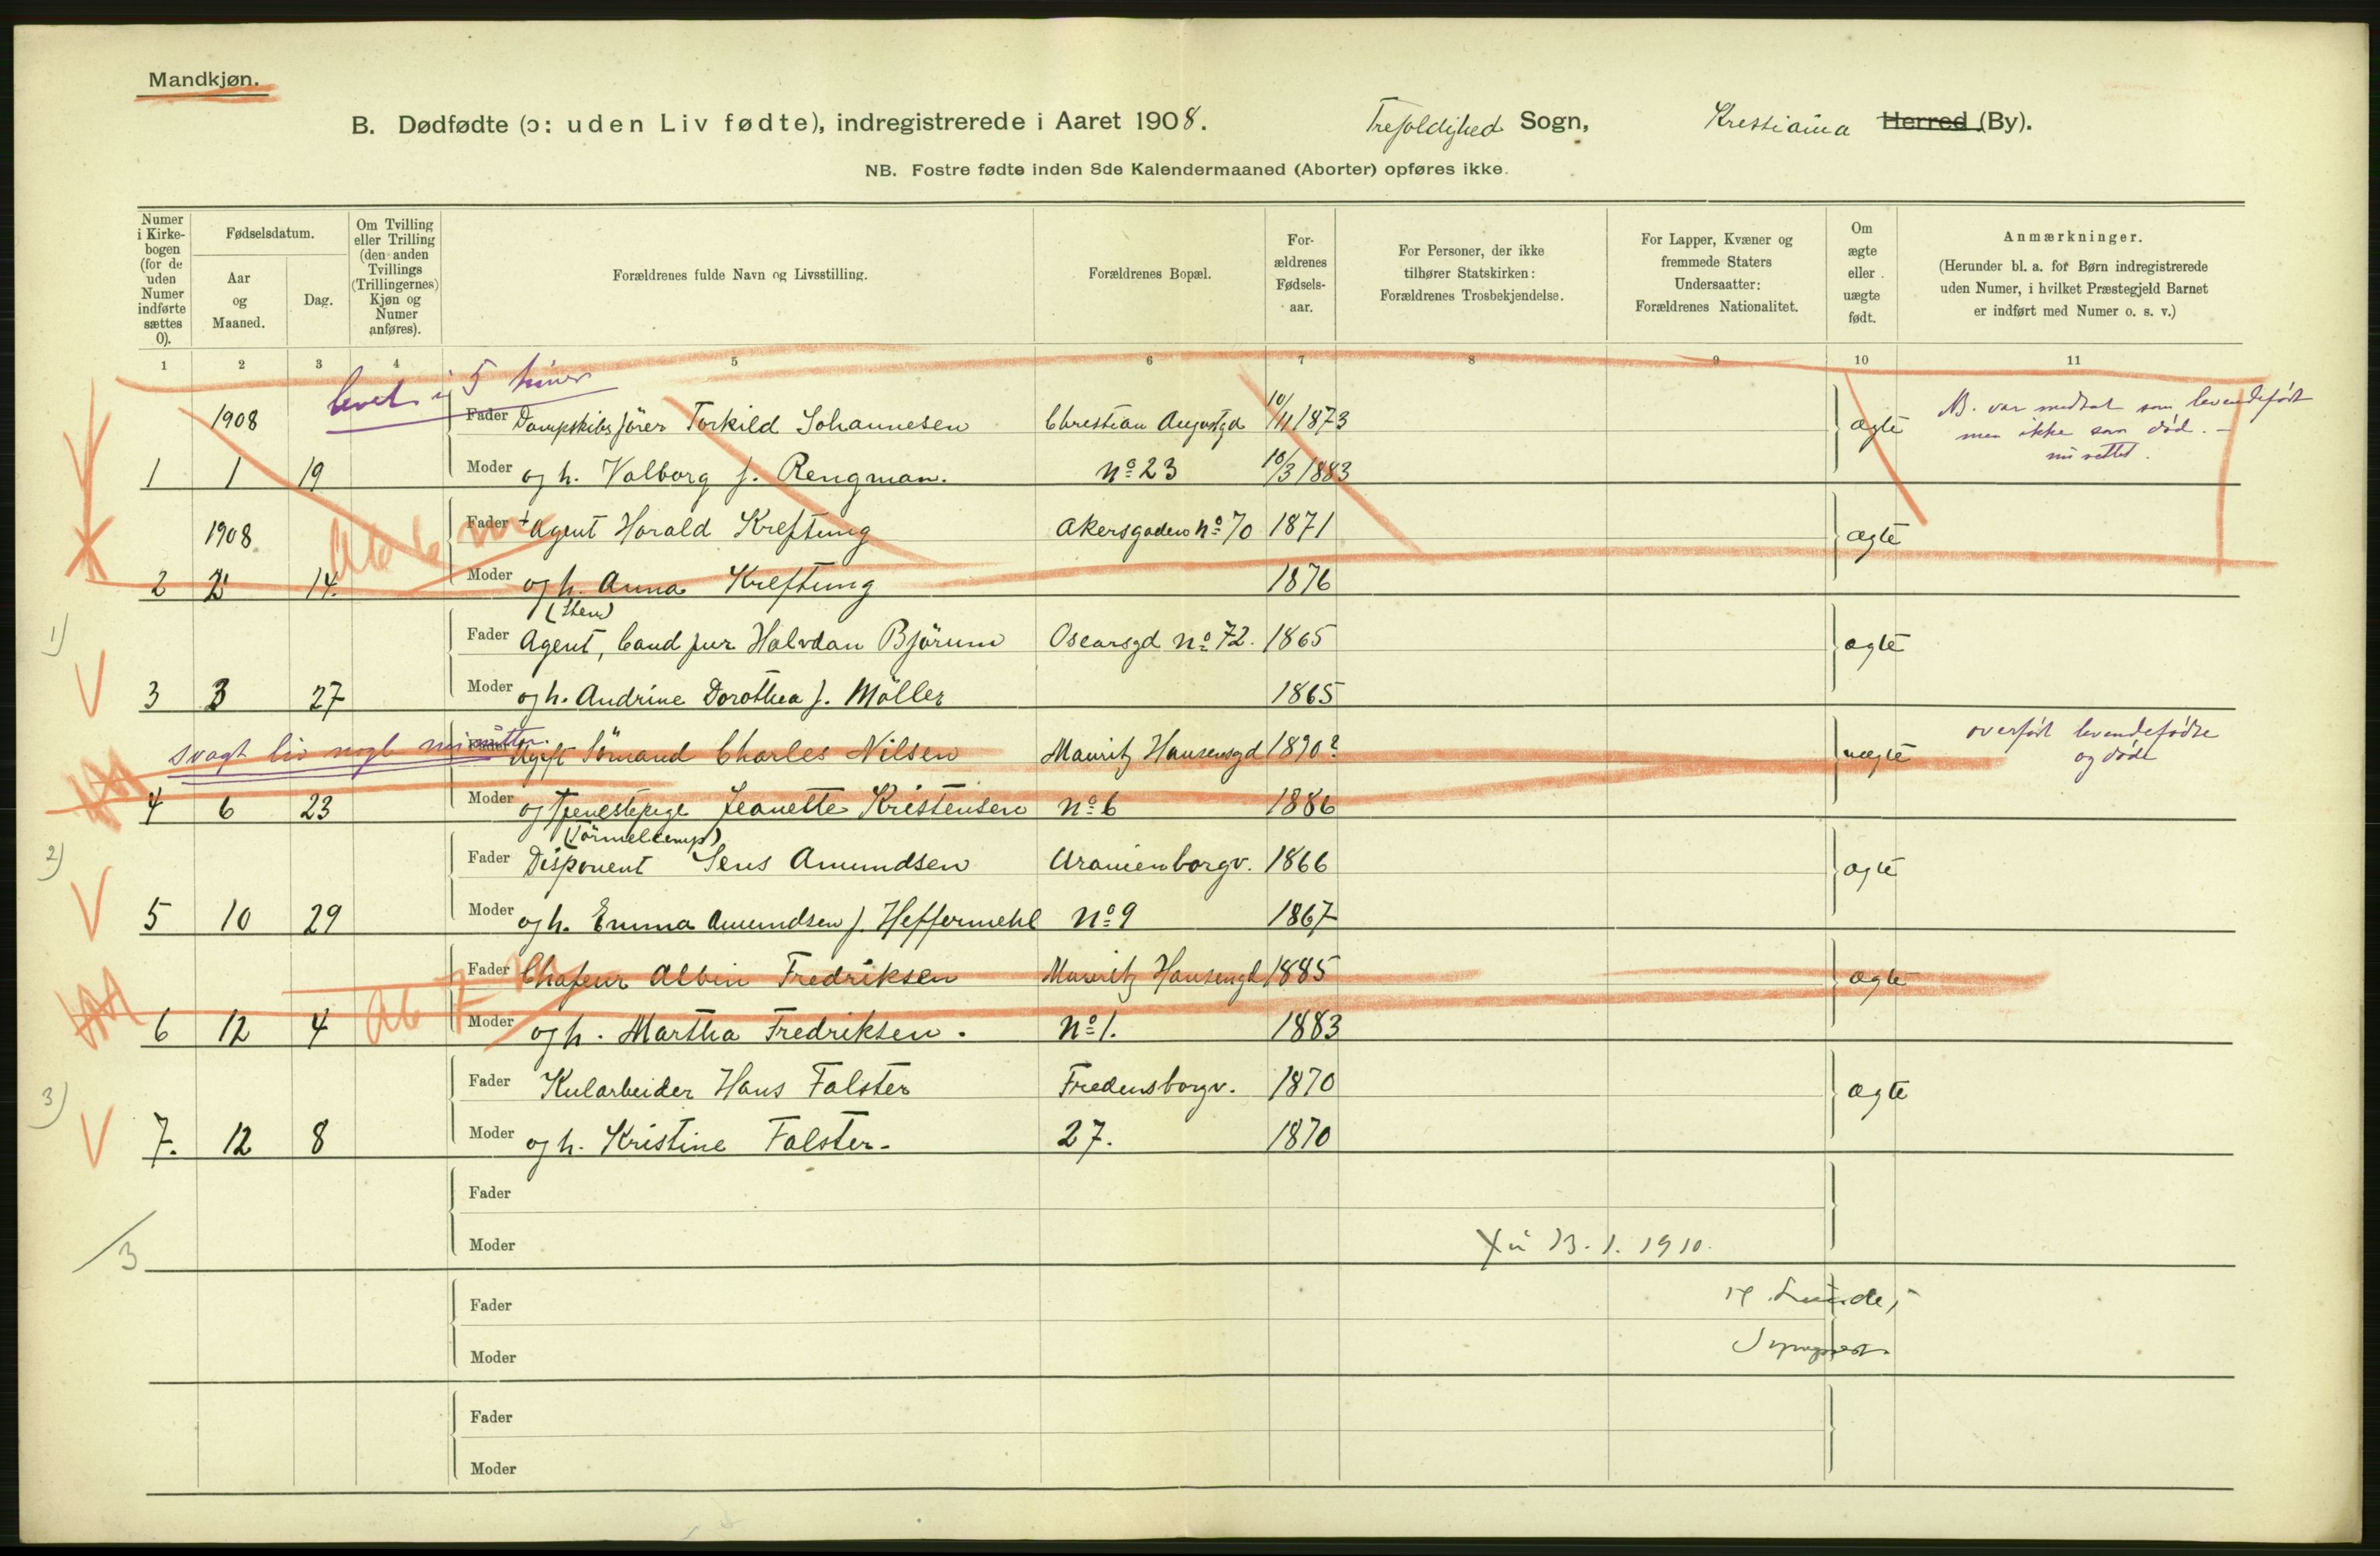 Mandkjøn.
B. Dødfødte (ɔ: uden Liv fødte), indregistrerede i Aaret 1908. Trefoldighed Sogn, Kristiania Herred (By).
NB. Fostre fødte inden 8de Kalendermaaned (Aborter) opføres ikke.
Numer i Kirkebogen (for de uden Numer indførte sættes 0).
Fødselsdatum.
Aar og Maaned.
Dag.
Om Tvilling eller Trilling (den anden Tvillings (Trillingernes) Kjøn og Numer anføres).
Forældrenes fulde Navn og Livsstilling.
Forældrenes Bopæl.
Forældrenes Fødselsaar.
For Personer, der ikke tilhører Statskirken: Forældrenes Trosbekjendelse.
For Lapper, Kvæner og fremmede Staters Undersaatter: Forældrenes Nationalitet.
Om ægte eller uægte født.
Anmærkninger.
(Herunder bl. a. for Børn indregistrerede uden Numer, i hvilket Præstegjeld Barnet er indført med Numer o. s. v.)
1 2 3 4 5 6 7 8 9 10 11
levet i 5 timer
1908 Fader Dampskibsfører Torkild Johannesen Christian Augustgd 10/11 1873 ægte
NB. var medtat som levendefødt
men ikke som død. —
nu rettet.
1 1 19 Moder og h. Valborg f. Rengman. No 23 10/3 1883
1908 Fader Agent Harald Kreftung Akersgaden No 70 1871 ægte
2 2 14. Moder og h. Anna Kreftung 1876
(Sten)
1) Fader Agent, cand jur Halvdan Bjørum Oscarsgd No 72. 1865 ægte
V 3 3 27 Moder og h. Andrine Dorothea f. Møller 1865
svagt liv nogle minutter.
Fader Ugift Sømand Charles Nilsen Mauritz Hansensgd 1890? uægte
overført levendefødte
og døde
4 6 23 Moder og Tjenestepige Jeanette Kristensen No 6 1886
2) Fader Disponent Jens Amundsen Uranienborgv. 1866 ægte
V 5 10 29 Moder og h. Emma Amundsen f. Heffermehl No 9 1867
Fader Chafeur Albin Fredriksen Mauritz Hansengd 1885 ægte
6 12 4 Ab Moder og h. Martha Fredriksen. No 1. 1883
3) Fader Kularbeider Hans Falster Fredensborgv. 1870 ægte
V 7. 12 8 Moder og h. Kristine Falster. 27. 1870
Fader
/3 Moder 13.1.1910.
Fader
Moder
Fader
Moder